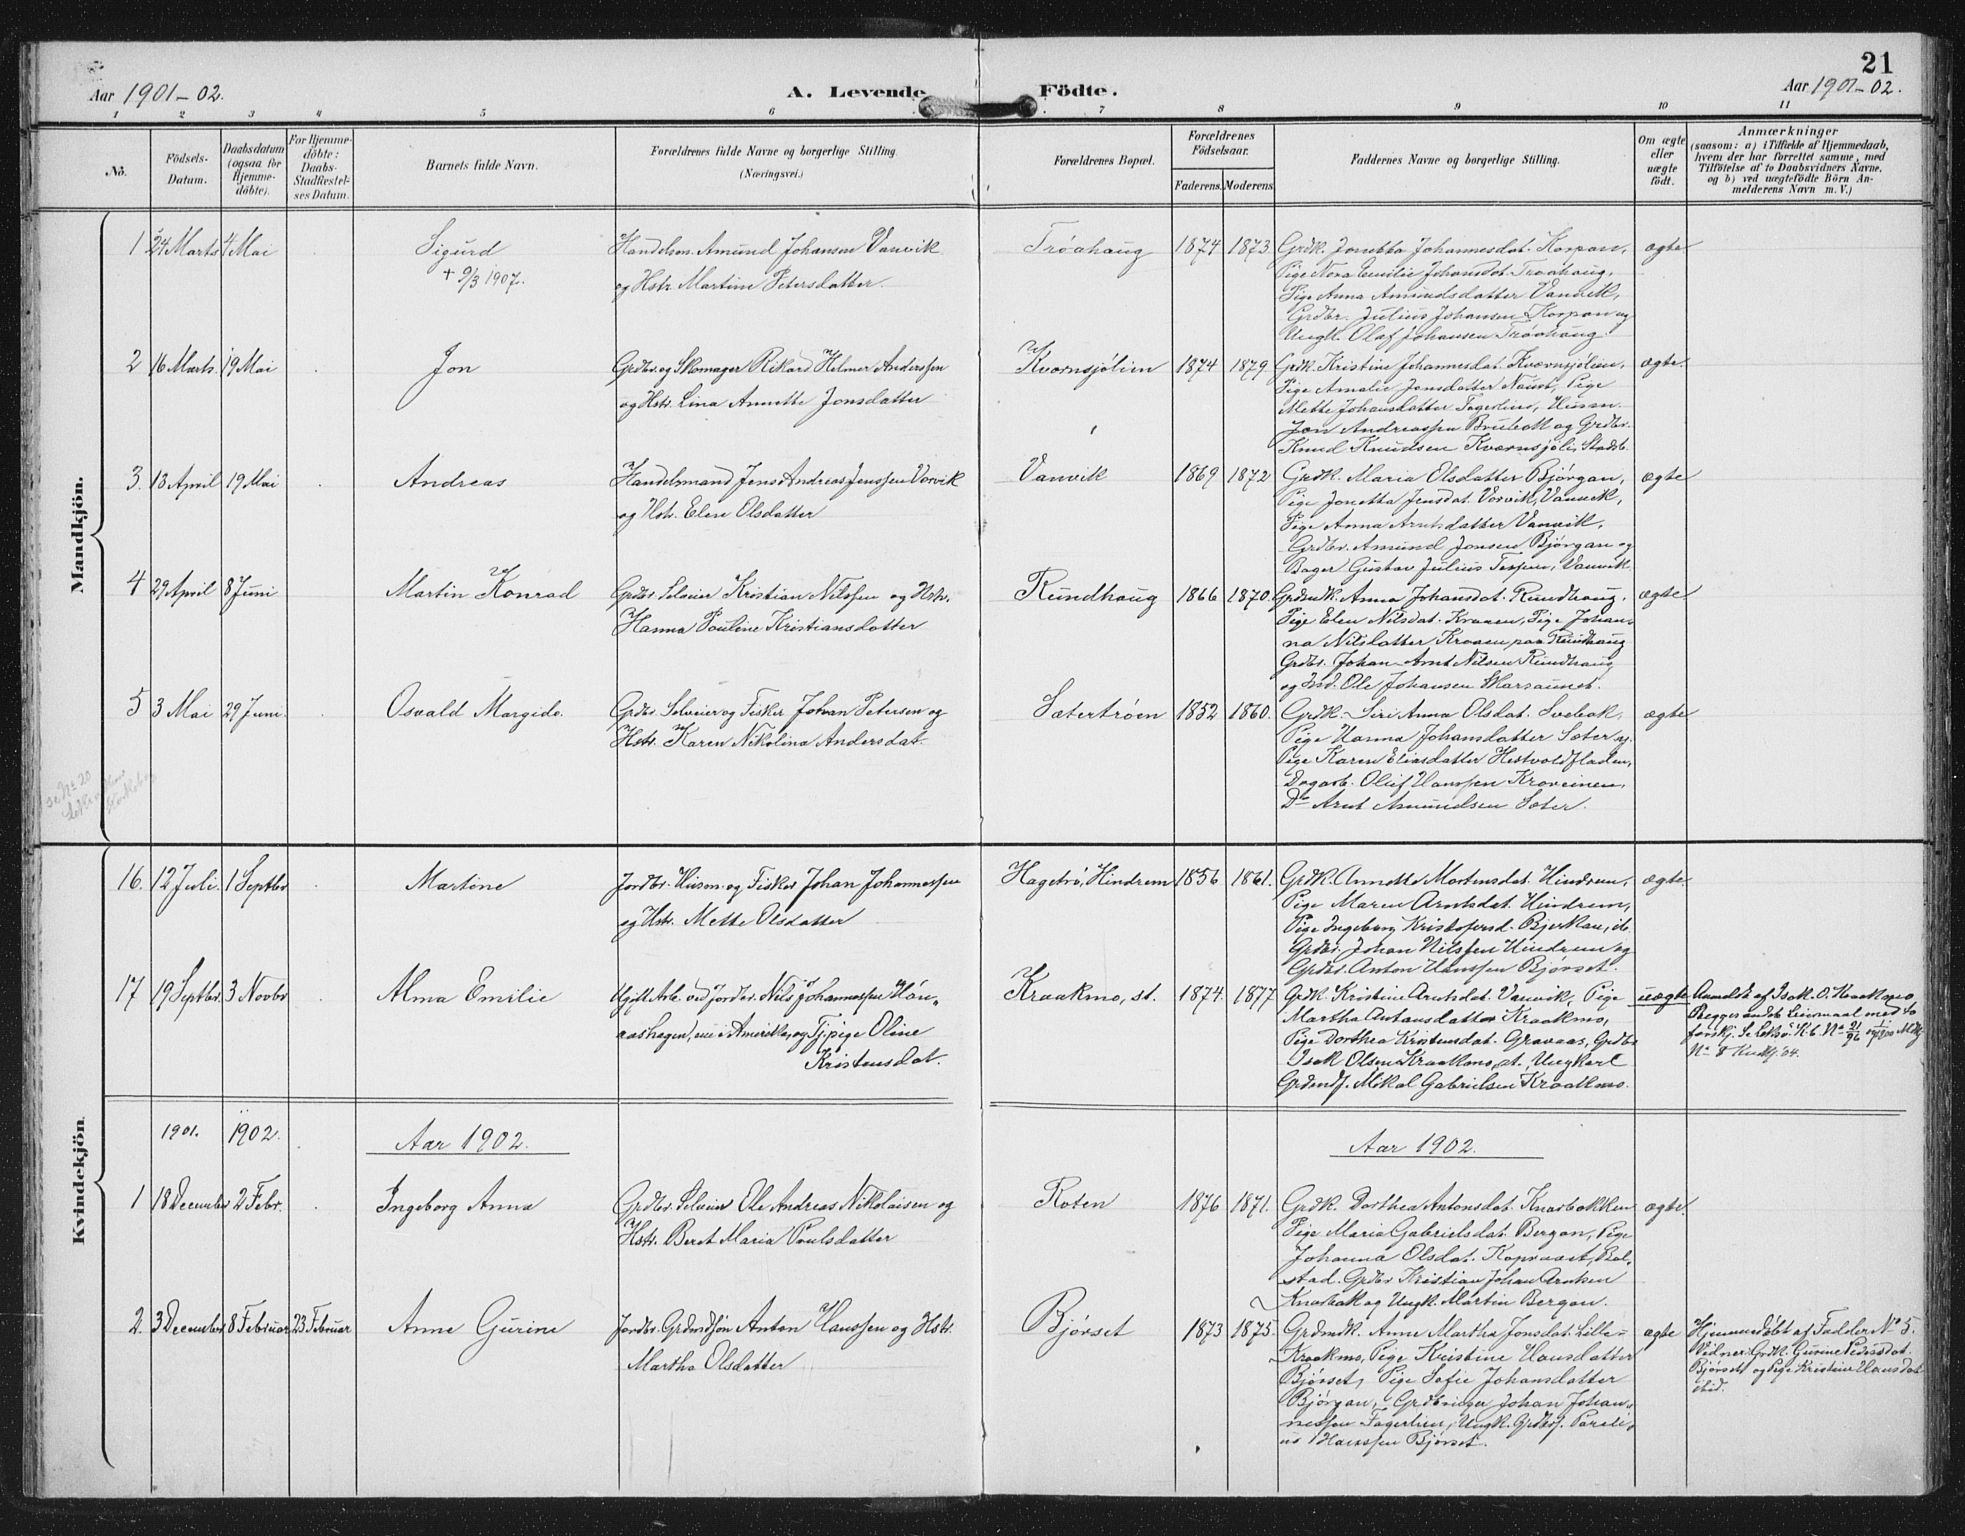 21
Aar 1901-02.
A. Levende Födte.
Aar 1901-02.
1 2 3 4 5 6 7 8 9 10 11
No.
Födsels-Datum.
Daabsdatum (ogsaa for Hjemmedöbte).
For Hjemmedöbte: Daabs-Stadfæstelses Datum.
Barnets fulde Navn.
Forældrenes fulde Navne og borgerlige Stilling.
(Næringsvei.)
Forældrenes Bopæl.
Forældrenes Födselsaar.
Faderens. Moderens.
Faddernes Navne og borgerlige Stilling.
Om ægte eller uægte födt.
Anmærkninger
(saasom: a) i Tilfælde af Hjemmedaab, hvem der har forrettet samme, med Tilföielse af to Daabsvidners Navne, og b) ved uægtefödte Börn Anmelderens Navn m. V.)
Mandkjön.
1 24 Marts 4 Mai
Sigurd
+ 9/3 1907.
Handelsm. Amund Johansen Vanvik
og Hstr. Martine Petersdatter.
Trøahaug 1874 1873
Grdk. Jonetta Johannesdat. Korpan,
Pige Nora Emilie Johansdat. Trøahaug,
Pige Anna Amundsdatter Vanvik,
Grdbr. Julius Johansen Korpan og
Ungk. Olaf Johansen Trøahaug.
ægte
2 16 Marts 19 Mai
Jon
Grdbr. og Skomager Rikard Helmer Anderssen
og Hstr. Lina Annette Jonsdatter
Kvernsjølien 1874 1879
Grdk. Kristine Johannesdat. Kværnsjølien,
Pige Amalie Jonsdatter Naust, Pige
Mette Johansdatter Fagerlien, Husm.
Jon Andreassen Brubakk og Grdbr.
Knud Knudsen Kværnsjøli, Stadsb.
ægte.
3. 13 April 19 Mai
Andreas
Handelsmand Jens Andreas Jenssen Vorvik
og Hstr. Elen Olsdatter
Vanvik 1869 1872
Grdk. Maria Olsdatter Bjørgan,
Pige Jonetta Jensdat. Vorvik, Vanvik,
Pige Anna Arntsdatter Vanvik,
Grdbr. Amund Jonsen Bjørgan og
Bager Gustav Julius Vanvik
ægte
4 29 April 8 Juni
Martin Konrad
Grdbr. Selveier Kristian Nilssen og Hstr.
Hanna Pauline Kristiansdatter
Rundhaug 1866 1870.
Grdmdk. Anna Johansdat. Rundhaug,
Pige Elen Nilsdat. Kraaen, Pige Johan-
na Nilsdatter Kraaen paa Rundhaug
Grdbr. Johan Arnt Nilsen Rundhaug
og Ind. Ole Johansen Skarsaunet.
ægte
5 3 Mai 29 Juni.
Osvald Margido.
Grdbr. Selveier og Fisker Johan Petersen og
Hstr. Karen Nikolina Andersdat.
Sætertrøen 1852 1860.
Grdk. Siri Anna Olsdat. Svebak,
Pige Hanna Johansdatter Sæter og
Pige Karen Eliasdatter Hestvoldfladen,
Dagarb. Oluf Hanssen Kroveinen,
Do Arnt Amundsen Sæter.
ægte
se No 20
Kvindekjön.
16. 12 Juli 1 Septbr
Martine
Jordbr. Husm. og Fisker Johan Johannessen
og Hstr. Mette Olsdatter
Hagetrø, Hindrem 1856 1861.
Grdk. Annette Mortensdat. Hindrem,
Pige Maren Arntsdat. Hindrem,
Pige Ingeborg Kristofersd. Bjerkan, ib.
Grdbr. Johan Nilssen Hindrem og
Grdbr. Anton Hanssen Bjørset.
ægte.
17 19 Septbr. 3 Novbr
Alma Emilie
Ugift Arb. ved Jordbr. Nils Johannessen Høn-
aashagen, nu i Amerika, og Tj.pige Oline
Kristensdat.
Kraakmo, st. 1874. 1877
Grdk. Kristine Arntsdat. Vanvik, Pige
Martha Antonsdatter Kraakmo,
Pige Dorthea Kristensdat. Gravaas, Grdbr
Isak Olsen Kraakmo, st., Ungkarl
Grdmdf. Mikal Gabrielsen Kraakmo.
uægte
Anmeldt af Isak O. Kraakmo,
Begges andet Leiermaal med to
forskj. Se K.b. No 21/96
No 8 Kvkj. 04.
1901. 1902.
Aar 1902.
Aar 1902.
1 18 December 2 Febr.
Ingeborg Anna
Grdbr. Selveier Ole Andreas Nikolaisen og
Hstr. Beret Maria Poulsdatter
Roten 1876 1871.
Grdk. Dorthea Antonsdat. Knarbakken
Pige Maria Gabrielsdat. Bergan, Pige
Johanna Olsdat. Kopraaet, Bol-
stad. Grdbr Kristian Johan Arntsen
Knarbak og Ungk. Martin Bergan.
ægte.
2. 3 December 8 Februar 23 Februar
Anne Gurine
Jordbr. Grdmdsøn Anton Hanssen og Hstr.
Martha Olsdatter
Bjørset 1873 1875.
Grdmdk. Anne Martha Jonsdat. Lille-
Kraakmo, Pige Kristine Hansdatter
Bjørset, Pige Sofie Johansdatter
Bjørgan, Grdbruger Johan Johan-
nessen Fagerlien, Ungk. Grdbsf. Pareli-
us Hanssen Bjørset.
ægte
Hjemmedøbt af Fadder No 5.
Vidner: Grdk. Gurine Pedersdat.
Bjørset og Pige Kristine Hansdat
ibid.